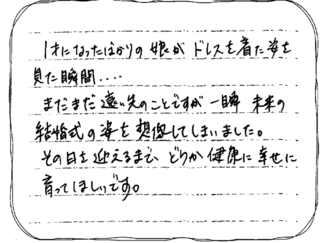 1才になったばかりの娘がドレスを着た姿を
見た瞬間....
まだまだ遠い先のことですが一瞬未来の
結婚式の姿を想像してしまいました。
その日を迎えるまで、どうか健康に幸せに
育ってほしいです。